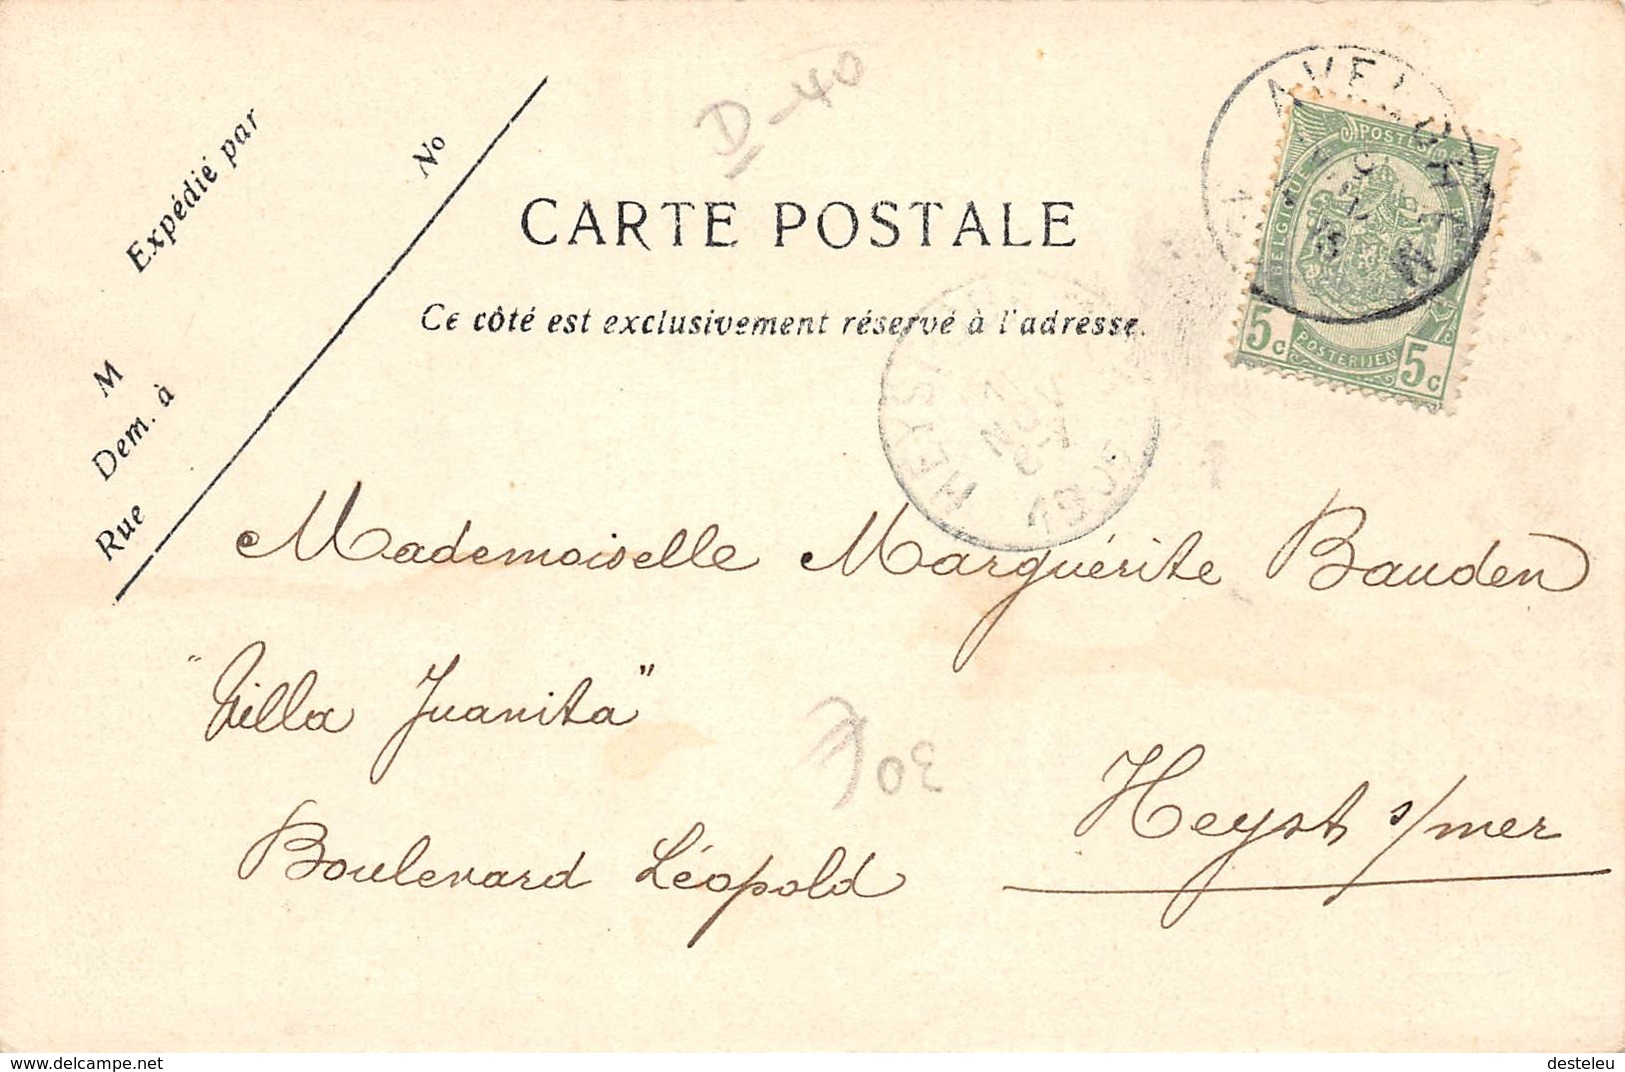 D-40
Expédié par
No
CARTE POSTALE
Ce côté est exclusivement réservé à l'adresse.
M
Dem. à
Rue
POSTES
BELGIQUE
POSTERIJEN
5c 5c
Mademoiselle Marguérite Bauden
"Villa Juanita"
Boulevard Léopold
Heyst s/mer
30
www.delcampe.net
desteleu